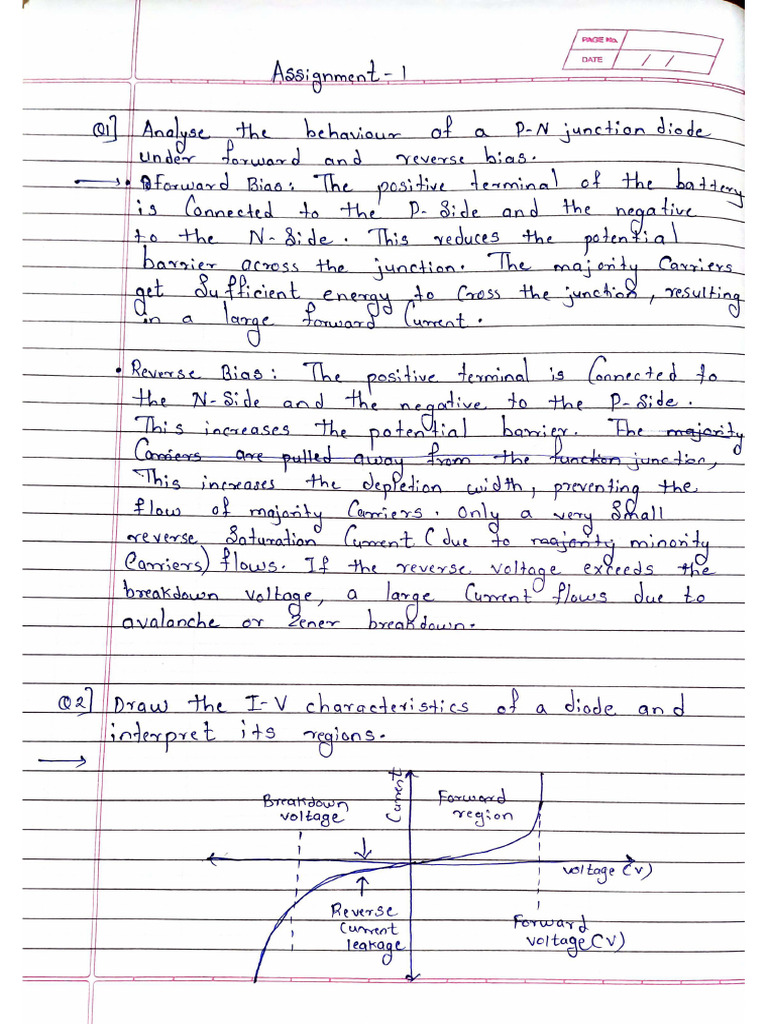 PAGE No.
DATE / /
Assignment - 1
Q1] Analyse the behaviour of a P-N junction diode
under forward and reverse bias.
→ • Forward Bias: The positive terminal of the battery
is Connected to the P-Side and the negative
to the N-Side. This reduces the potential
barrier across the junction. The majority Carriers
get Sufficient energy to Cross the junction, resulting
in a large forward Current.
• Reverse Bias: The positive terminal is Connected to
the N-Side and the negative to the P-Side.
This increases the potential barrier. The majority
Carriers are pulled away from the function junction,
This increases the depletion width, preventing the
flow of majority Carriers. Only a very Small
reverse Saturation Current (due to majority minority
Carriers) flows. If the reverse voltage exceeds the
breakdown voltage, a large Current flows due to
avalanche or Zener breakdown.
Q2] Draw the I-V characteristics of a diode and
interpret its regions.
→
Current
Breakdown
voltage
Forward
region
voltage (V)
Reverse
Current
leakage
Forward
voltage (V)